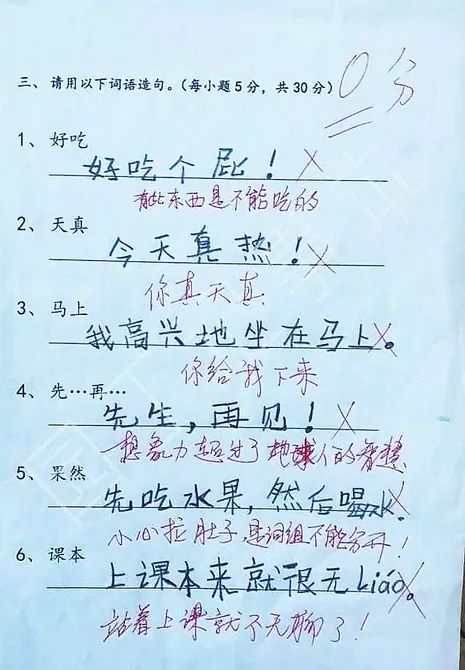 三、请用以下词语造句。(每小题5分,共30分)
0分
1、好吃
好吃个屁!
有些东西是不能吃的
2、天真
今天真热!
你真天真
3、马上
我高兴地坐在马上。
你给我下来
4、先…再…
先生,再见!
想象力超过了地球人的智慧
5、果然
先吃水果,然后喝水。
小心拉肚子是词组不能分开!
6、课本
上课本来就很无Liáo。
站着上课就不无聊了!